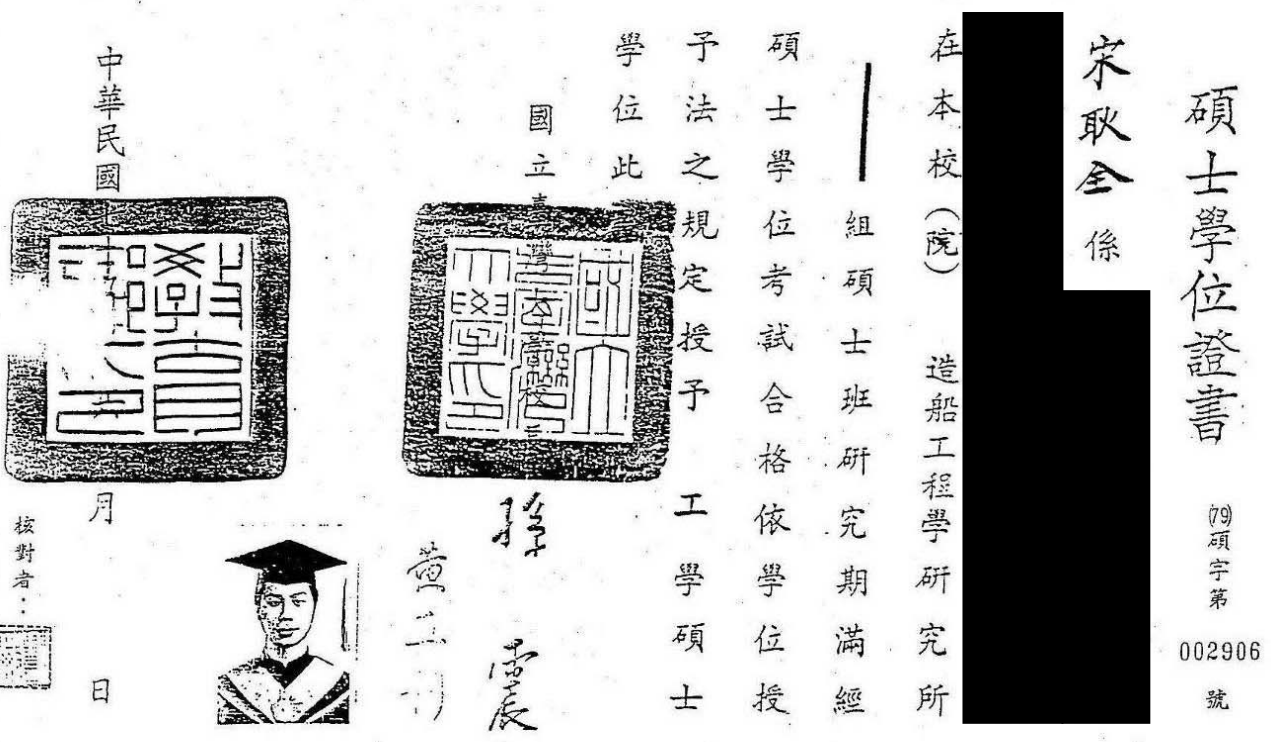 碩士學位證書
(79)碩字第 002906 號
宋耿全 係
在本校(院) 造船工程學研究所
組碩士班研究期滿經
碩士學位考試合格依學位授
予法之規定授予 工學碩士
學位此
國立臺灣大學校長
孫 震
中華民國七十九 月 日
核對者：